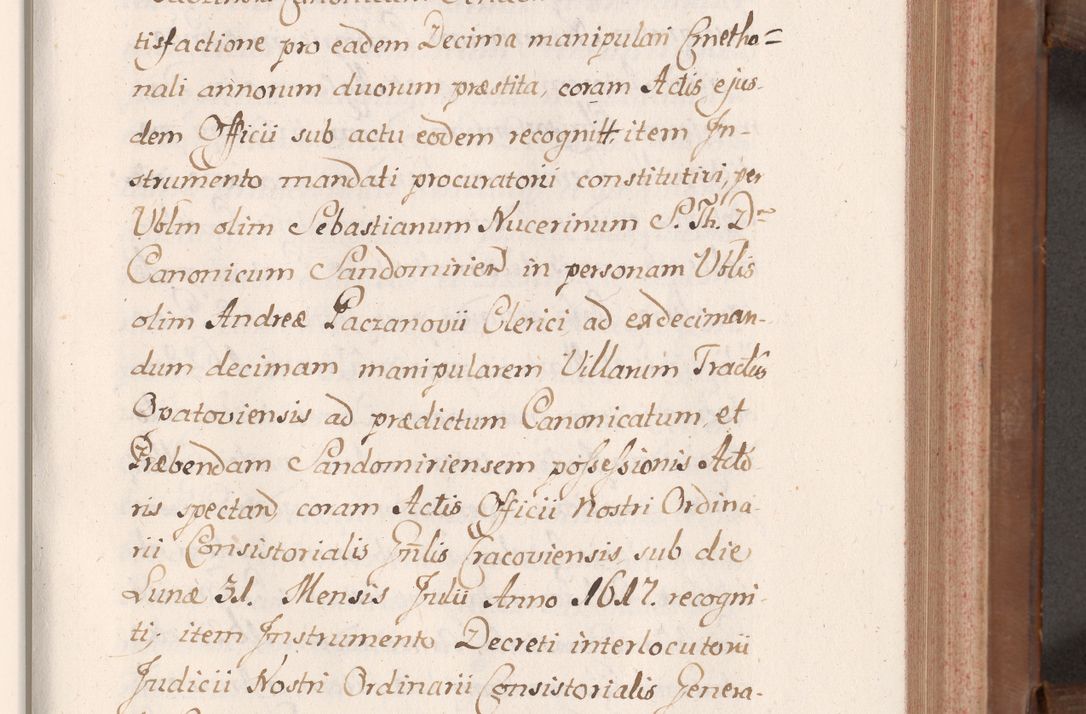 tisfactione pro eadem Decima manipulari Cmetho=
nali annorum duorum præstita, coram Actis ejus-
dem Officii sub actu eodem recognitt. item In-
strumento mandati procuratorii constitutivi, per
Vblm olim Sebastianum Nucerinum S. Th. Dr
Canonicum Sandomirien in personam Vblis
olim Andreæ Paczanovii Clerici, ad exdeciman-
dum decimam manipularem Villarum Tractus
Opatoviensis ad prædictum Canonicatum, et
Præbendam Sandomiriensem possessionis Acto-
ris spectan, coram Actis Officii Nostri Ordina-
rii Consistorialis Gnlis Cracoviensis, sub die
Lunæ 31. Mensis Julii Anno 1617. recogni-
ti; item Instrumento Decreti interlocutorii
Judicii Nostri Ordinarii Consistorialis Genera-